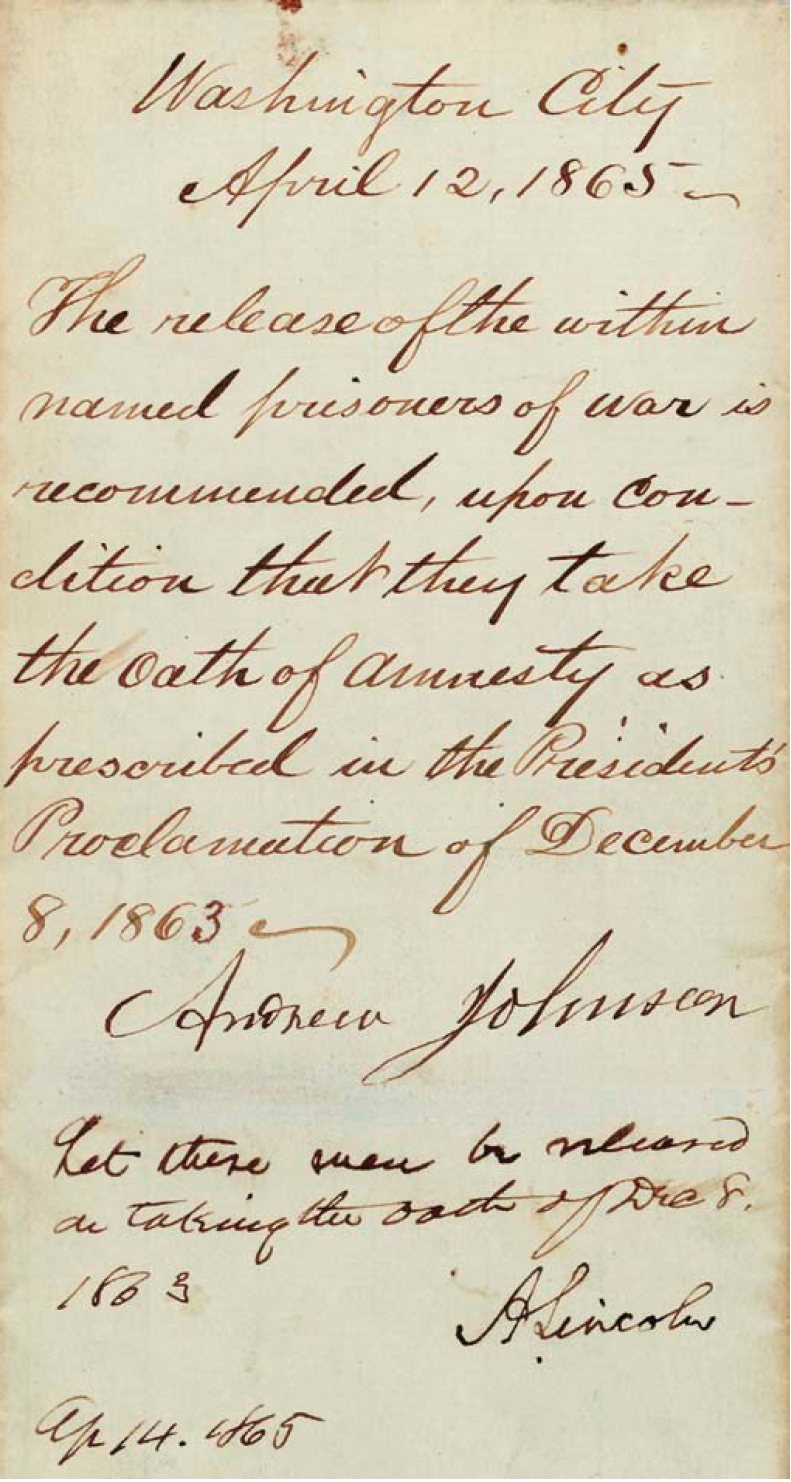 Washington City
April 12, 1865
The release of the within
named prisoners of war is
recommended, upon con-
dition that they take
the oath of amnesty as
prescribed in the President's
Proclamation of December
8, 1863
Andrew Johnson
Let these men be released
on taking the oath of Dec 8.
1863
A Lincoln
Ap 14. 1865